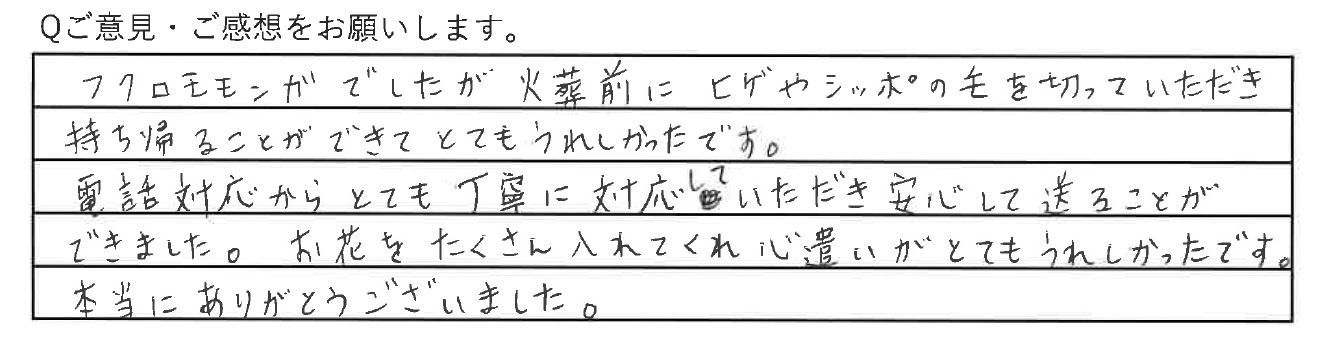 Qご意見・ご感想をお願いします。
フクロモモンガでしたが火葬前にヒゲやシッポの毛を切っていただき
持ち帰ることができてとてもうれしかったです。
電話対応からとても丁寧に対応していただき安心して送ることが
できました。お花をたくさん入れてくれ心遣いがとてもうれしかったです。
本当にありがとうございました。